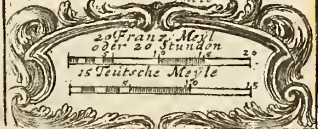 20 Franz: Meyl
oder 20 Stunden
10 15 20
15 Teutsche Meyle
5 10 15